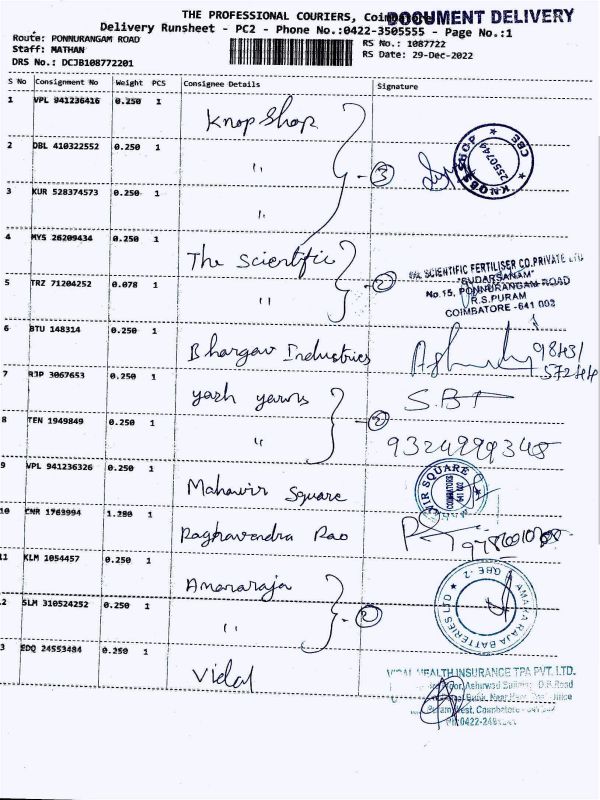 THE PROFESSIONAL COURIERS,
DOCUMENT DELIVERY
Delivery Runsheet - PC2 - Phone No.:0422-3505555 - Page No.:1
Route: PONNURANGAM ROAD
RS No.: 1087722
Staff: MATHAN
RS Date: 29-Dec-2022
DRS No.: DCJB108772201
S No Consignment No Weight PCS Consignee Details Signature
1 VPL 941236416 0.250 1 Knop Shop
2 DBL 410322552 0.250 1 "
3
KNOBS CBE 2550749
3 KUR 528374573 0.250 1 "
4 MYS 26209434 0.250 1 The Scientific
2
SCIENTIFIC FERTILISER CO.PRIVATE LTD
"SUDARSANAM"
No.15, PONNURANGAM ROAD
R.S.PURAM
COIMBATORE - 641 002
5 TRZ 71204252 0.078 1 "
6 BTU 148314 0.250 1 Bhargav Industries
98431
57244
7 RJP 3067653 0.250 1 yash yarns
2
S.B
8 TEN 1949849 0.250 1 "
9324999348
9 VPL 941236326 0.250 1 Mahavir Square
SQUARE
COIMBATORE
641 002
10 CNR 1763994 1.280 1 Raghavendra Rao
11 KLM 1054457 0.250 1 Amararaja
2
AMARA RAJA BATTERIES LTD
CBE - 2
2 SLM 310524252 0.250 1 "
3 EDQ 24553484 0.250 1 Vidal
HEALTH INSURANCE TPA PVT. LTD.